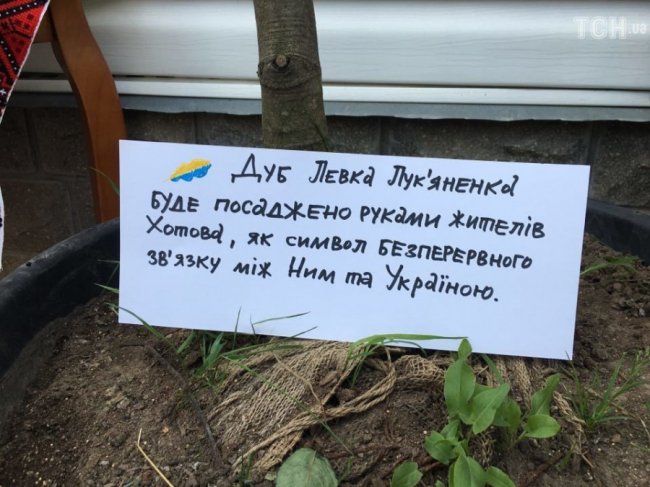 ТСН.ua
Дуб Левка Лук'яненка
буде посаджено руками жителів
Хотова, як символ безперервного
зв'язку між Ним та Україною.